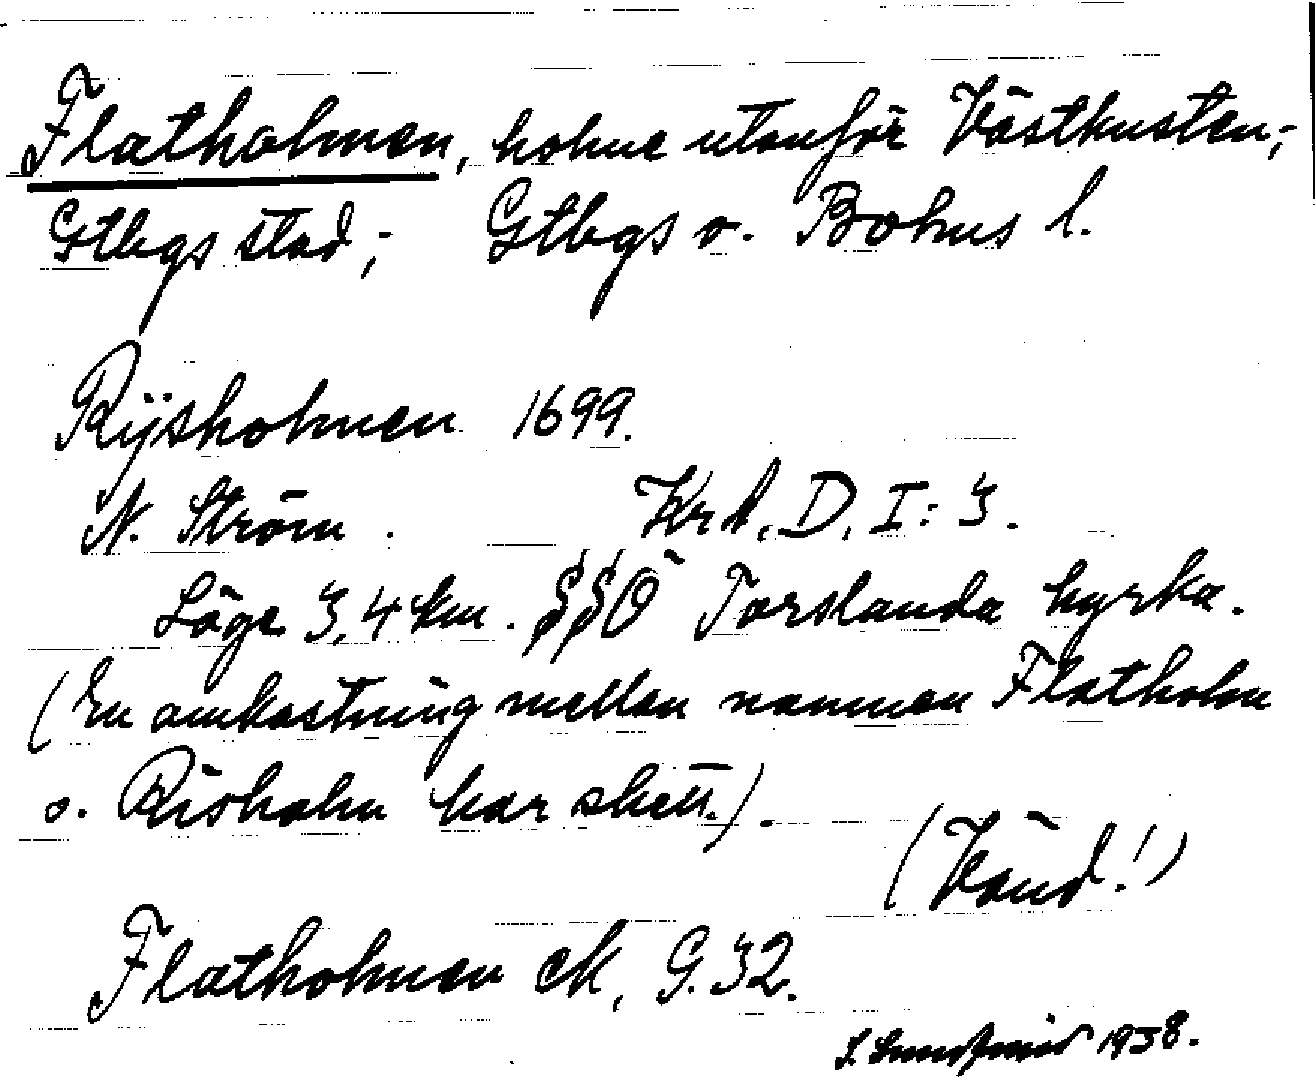 Flatholmen, holme utanför Västkusten;
Gtbgs stad; Gtbgs o. Bohus l.
Rijsholmen 1699.
N. Ström. Krt. D. I: 3.
Läge 3,4 km. §§Ö Torslanda kyrka.
(En omkastning mellan namnen Flatholm
o. Risholm har skett.).
(Vänd!)
Flatholmen ek, G. 32.
1938.